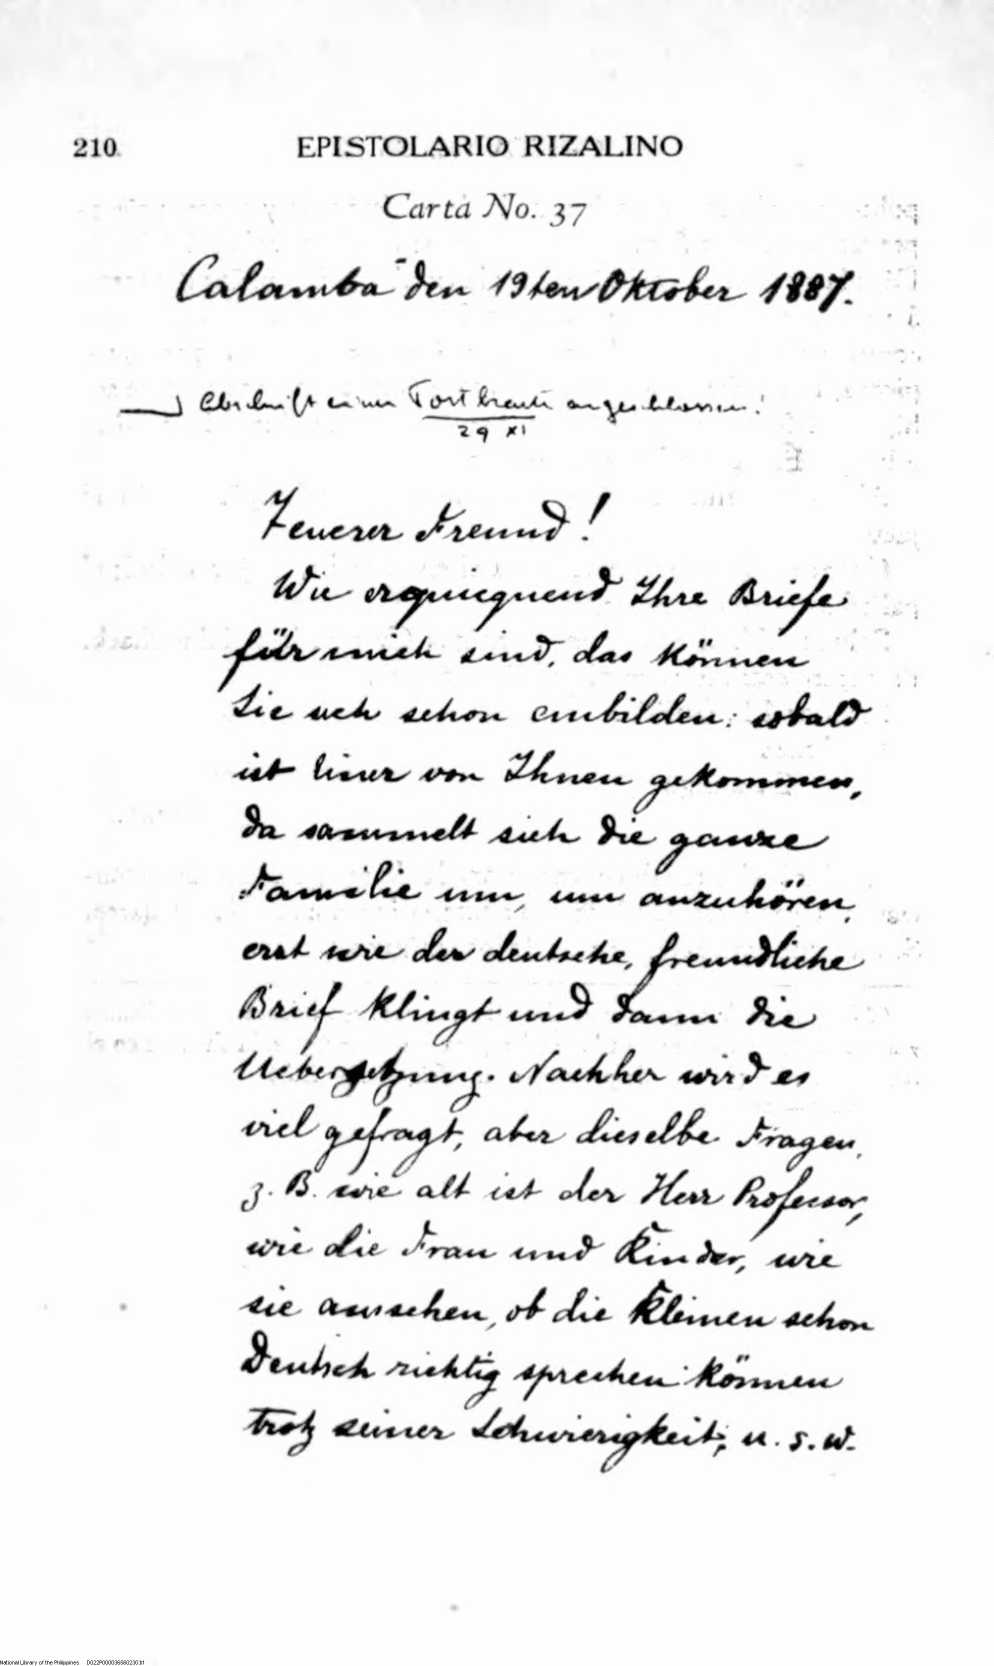 210 EPISTOLARIO RIZALINO
Carta No. 37
Calamba den 19ten Oktober 1887.
Abschrift einer angeschlossen!
29 XI
Teuerer Freund!
Wie erquicquend Ihre Briefe
für mich sind, das können
Sie sich schon einbilden: sobald
ist einer von Ihnen gekommen,
da sammelt sich die ganze
Familie um, um anzuhören,
erst wie der deutsche, freundliche
Brief klingt und dann die
Uebersetzung. Nachher wird es
viel gefragt, aber dieselbe Fragen,
z. B. wie alt ist der Herr Professor,
wie die Frau und Kinder, wie
sie aussehen, ob die Kleinen schon
Deutsch richtig sprechen können
trotz seiner Schwierigkeit, u. s. w.
National Library of the Philippines